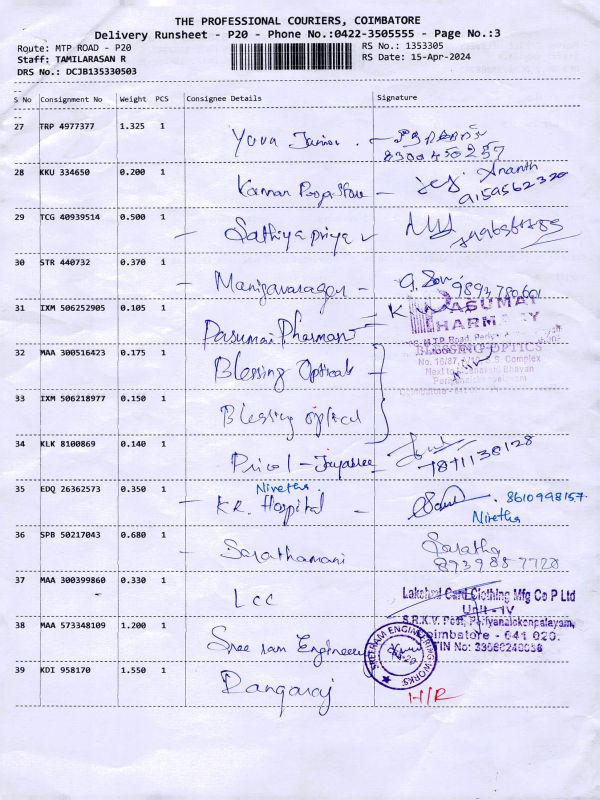 THE PROFESSIONAL COURIERS, COIMBATORE
Delivery Runsheet - P20 - Phone No.:0422-3505555 - Page No.:3
Route: MTP ROAD - P20
RS No.: 1353305
Staff: TAMILARASAN R
RS Date: 15-Apr-2024
DRS No.: DCJB135330503
S No Consignment No Weight PCS Consignee Details Signature
27 TRP 4977377 1.325 1
28 KKU 334650 0.200 1 Ananth
9159562320
29 TCG 40939514 0.500 1 Sathiya priya
30 STR 440732 0.370 1
9893780601
31 IXM 506252905 0.105 1 Pasumai Pharmacy
32 MAA 300516423 0.175 1 Blessing Opticals BLESSING OPTICS
33 IXM 506218977 0.150 1 Blessing optical
34 KLK 8100869 0.140 1 Pricol - Jayasree
35 EDQ 26362573 0.350 1 Nivetha
K.R. Hospital 8610998157
Nivetha
36 SPB 50217043 0.680 1 Sarathamani Saratha
37 MAA 300399860 0.330 1 LCC Lakshmi Card Clothing Mfg Co P Ltd
Unit - IV
S.R.K.V. Post, Periyanaickenpalayam,
Coimbatore - 641 020.
38 MAA 573348109 1.200 1 Sree ram Engineer SREERAM ENGINEERING WORKS
39 KDI 958170 1.550 1 Rangaraj H/R